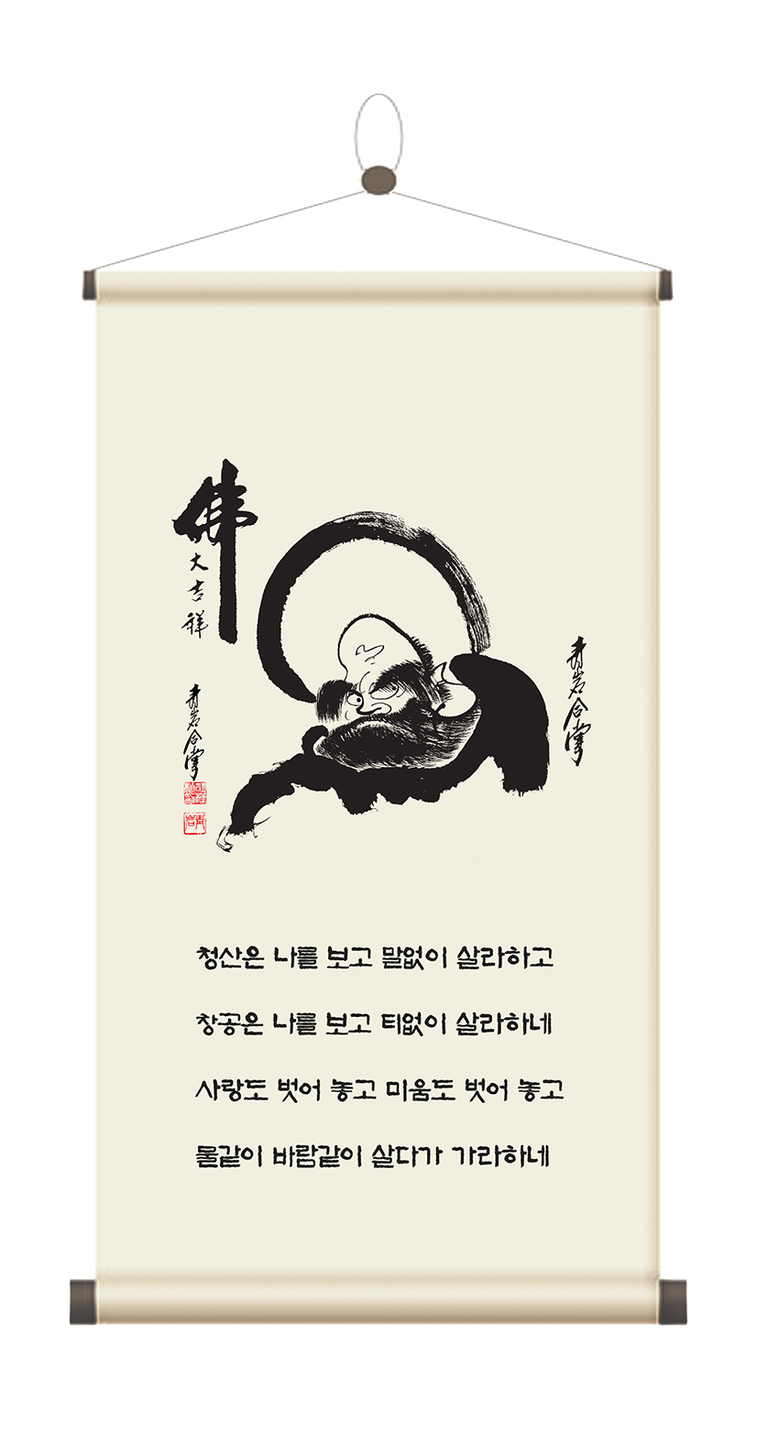 佛
大吉祥
青岩合掌
青岩合掌
청산은 나를 보고 말없이 살라하고
창공은 나를 보고 티없이 살라하네
사랑도 벗어 놓고 미움도 벗어 놓고
물같이 바람같이 살다가 가라하네